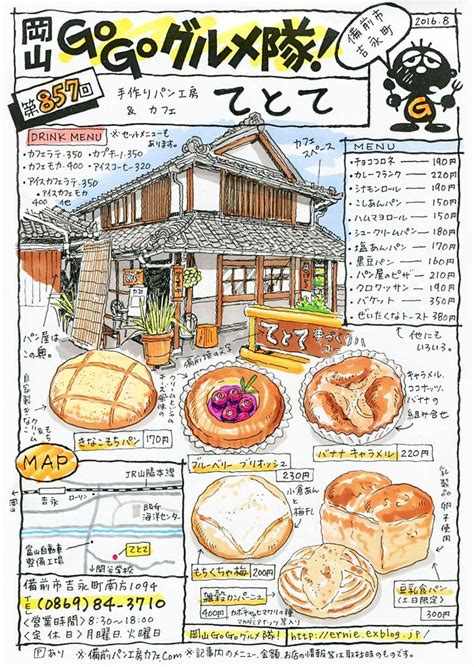 岡山GoGoグルメ隊!
備前市
吉永町
2016.8
第857回
手作りパン工房
& カフェ
てとて
G
DRINK MENU
※セットメニューも
あります。
・カフェラテ-350 ・カプチーノ-350
・カフェモカ-400 ・アイスコーヒー-320
・アイスカフェラテ-350
・アイスカフェモカ
400 他
カフェ
スペース
MENU
・チョココロネ 190円
・カレーフランク 220円
・シナモンロール 190円
・こしあんパン 150円
・ハムマヨロール 190円
・シュークリームパン 180円
・塩あんパン 170円
・黒豆パン 160円
・パン屋のピザ 210円
・クロワッサン 190円
・バゲット 350円
・ぜいたくなトースト 380円
↑他にも
いろいろ。
パン屋は
この奥。
てとて
備前焼の文字
自家製きなこクリーム
きなこもちパン 170円
ブルーベリー ブリオッシュ
230円
キャラメル、
ココナッツ、
バナナの
組み合せ
バナナ キャラメル 220円
MAP
JR山陽本線
吉永
B&G
海洋センター
富山自動車
整備工場
てとて
備前市吉永町南方1094
TEL (0869)84-3710
<営業時間> 8:30~18:00
<定休日> 月曜日、火曜日
小倉あん
と
梅干し
もちくちゃ梅 200円
雑穀カンパーニュ
400円
カボチャとヒマワリの種
マカダミアナッツ入り
豆乳食パン
(土日限定)
300円
岡山GoGoグルメ隊! http://ernie.exblog.jp/
P あり ※備前パン工房カフェCom ※記事内のメニュー、金額、お店の情報等は取材時のものです。